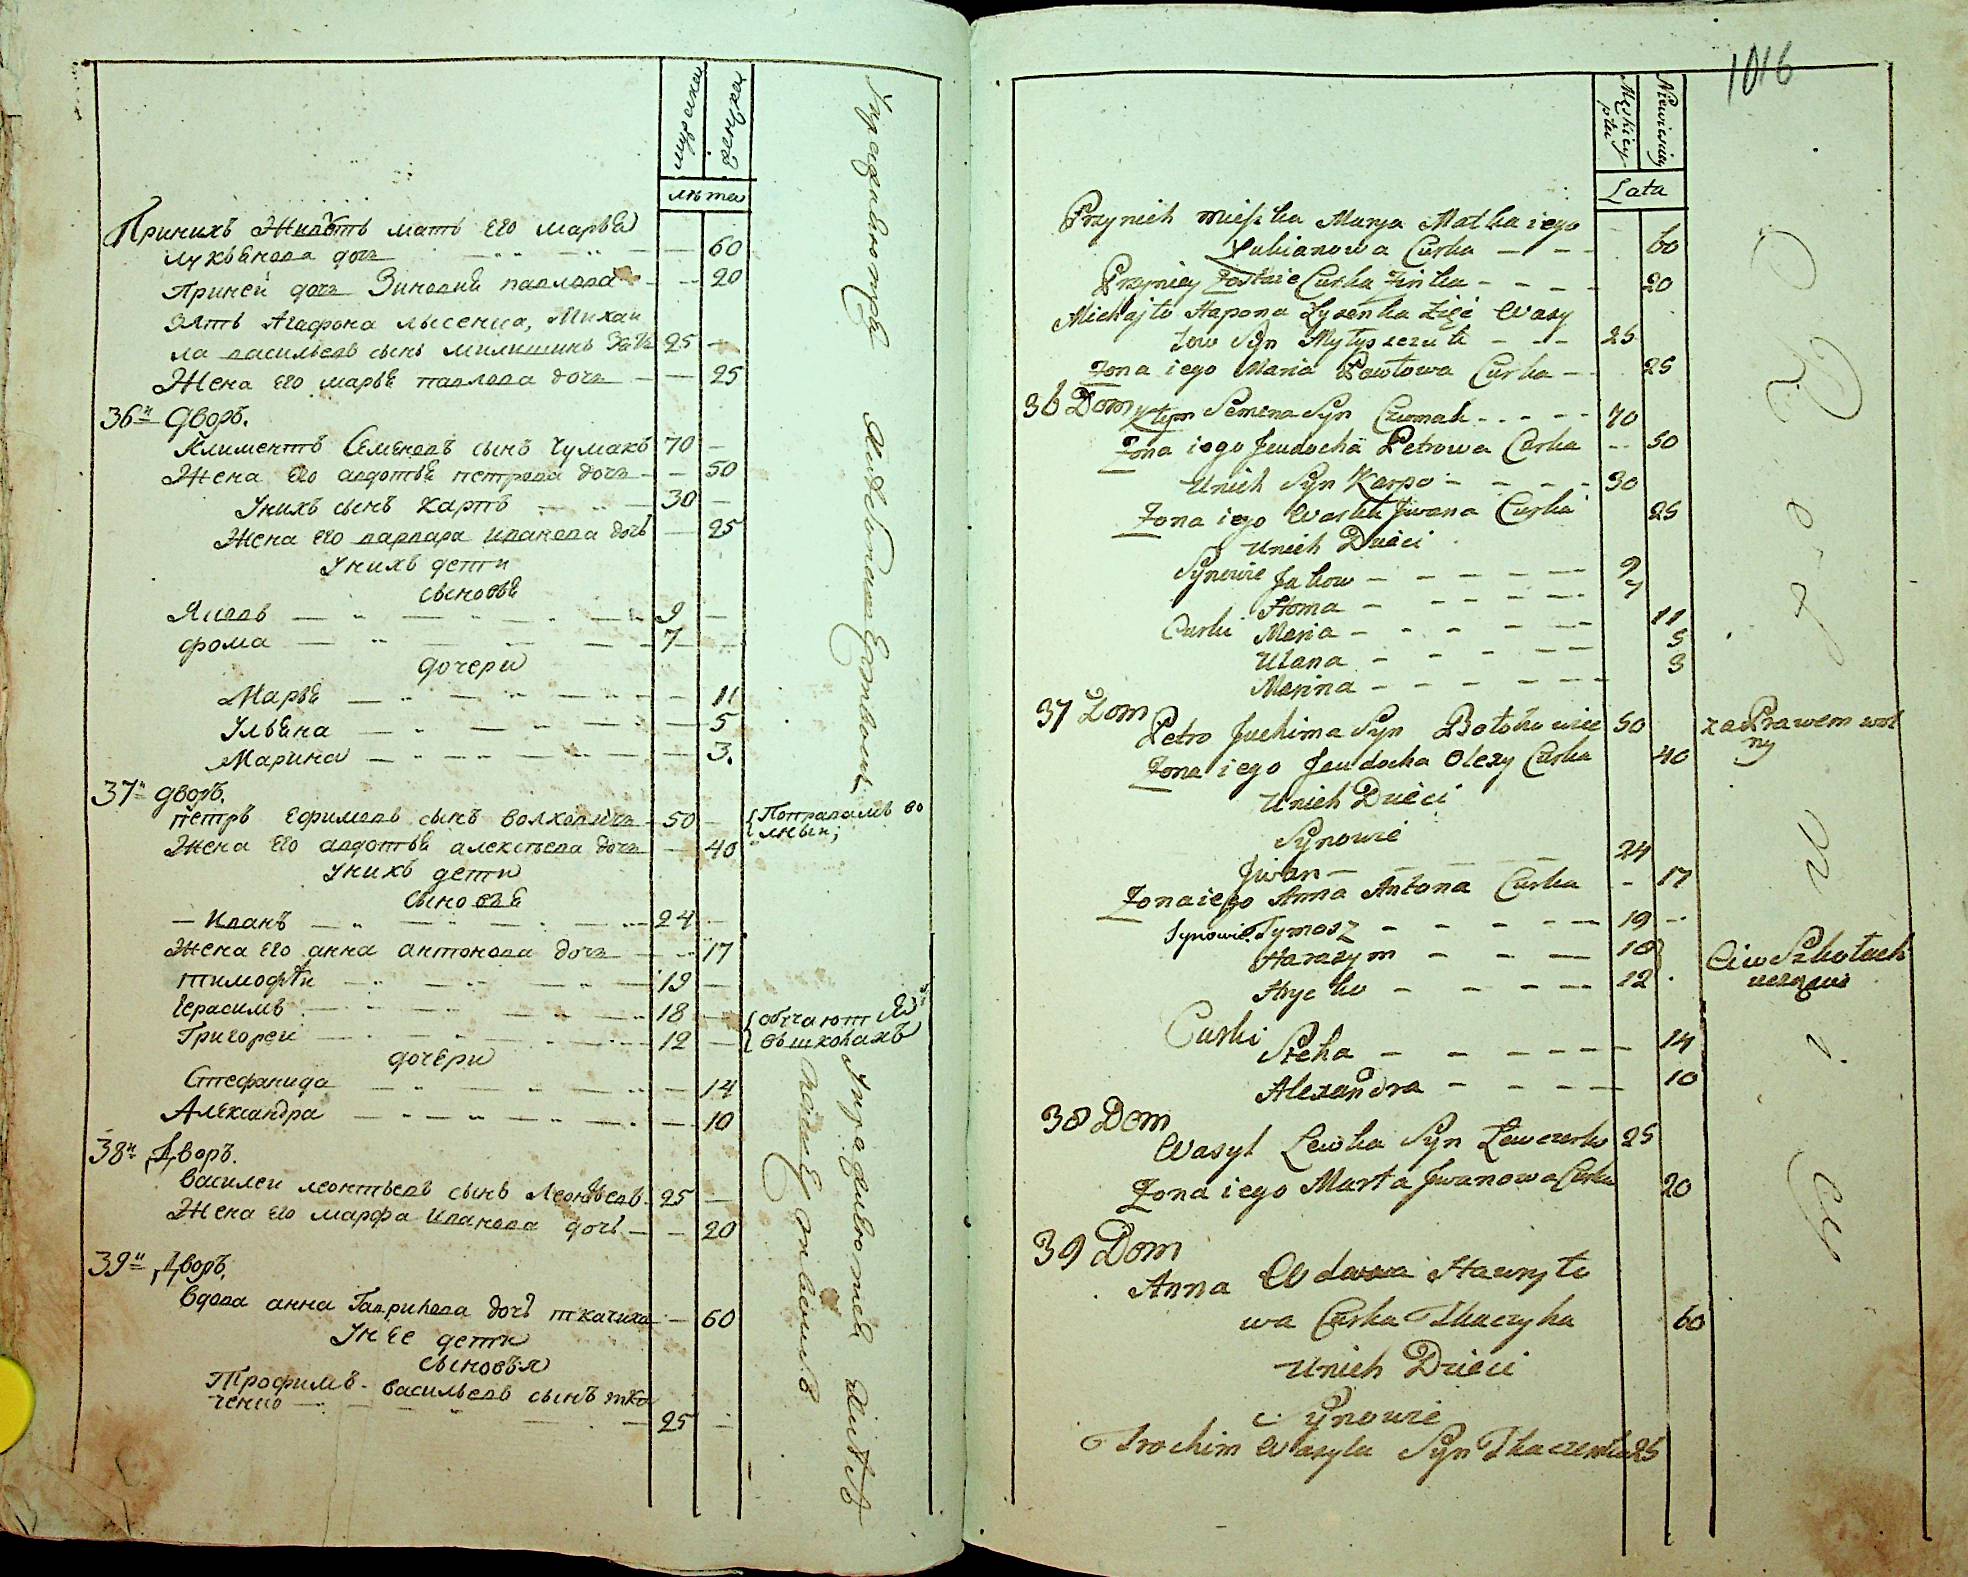 мужска
женска
лѣта
Принихъ Живетъ мать его марья
лукьянова дочь 60
Приней дочь Зиновия павлова 20
Зять Агафона лысенка, Михаи
ла васильевъ сынъ 25
Жена его марья павлова дочь 25
36й дворъ.
Климентъ Семеновъ сынъ Чумакъ 70
Жена его авдотья петрова дочь 50
Унихъ сынъ карпъ 30
Жена его варвара иванова дочь 25
Унихъ дети
сыновья
Яковъ 9
фома 7
дочери
Марья 11
Ульяна 5
Марина 3.
37й дворъ.
петръ Ефимовъ сынъ 50 по правамъ во
льный;
Жена его авдотья алексѣева дочь 40
Унихъ дети
сыновья
Иванъ 24
Жена его анна антонова дочь 17
тимофѣй 19
герасимъ 18 обучаютъся
Григорей 12 въ школахъ
дочери
Стефанида 14
Александра 10
38й Дворъ.
Василей леонтьевъ сынъ Леонтьевъ 25
Жена его марфа иванова дочь 20
39й Дворъ.
Вдова анна Гаврилова дочь ткачиха 60
У нее дети
сыновья
Трофимъ васильевъ сынъ тка
ченко 25
1016
Męskiey płci
Niewieściey
Lata
Przynich mieszka Marya Matka iego
Łukianowa Curka 60
Przyniey Zostaie Curka Zinka 20
Michajło Hapona Łysenka Zięć Wasy
low Syn 25
Zona iego Maria Pawłowa Curka 25
36 Dom
Kłym Semena Syn Czumak 70
Zona iego Jeudocha Petrowa Curka 50
Unich Syn Karpo 30
Zona iego Waska Jwana Curka 25
Unich Dzieci
Synowie Jakow 9
Homa 7
Curki Maria 11
Ulana 5
Marina 3
37 Dom
Petro Juchima Syn 50 za Prawem wol
ny
Zona iego Jeudocha Olexy Curka 40
Unich Dzieci
Synowie
Jwan 24
Zona iego Anna Antona Curka 17
Synowie Tymosz 19
Harasym 18 Ci w Szkołach
Hryćko 12 uczą sie
Curki Steha 14
Alexandra 10
38 Dom
Wasyl Lewka Syn Lewczenko 25
Zona iego Marta Jwanowa Curka 20
39 Dom
Anna Wdowa Hawryło
wa Curka Tkaczyha 60
Unich Dzieci
Synowie
Trochim Wasyla Syn Tkaczenko 25